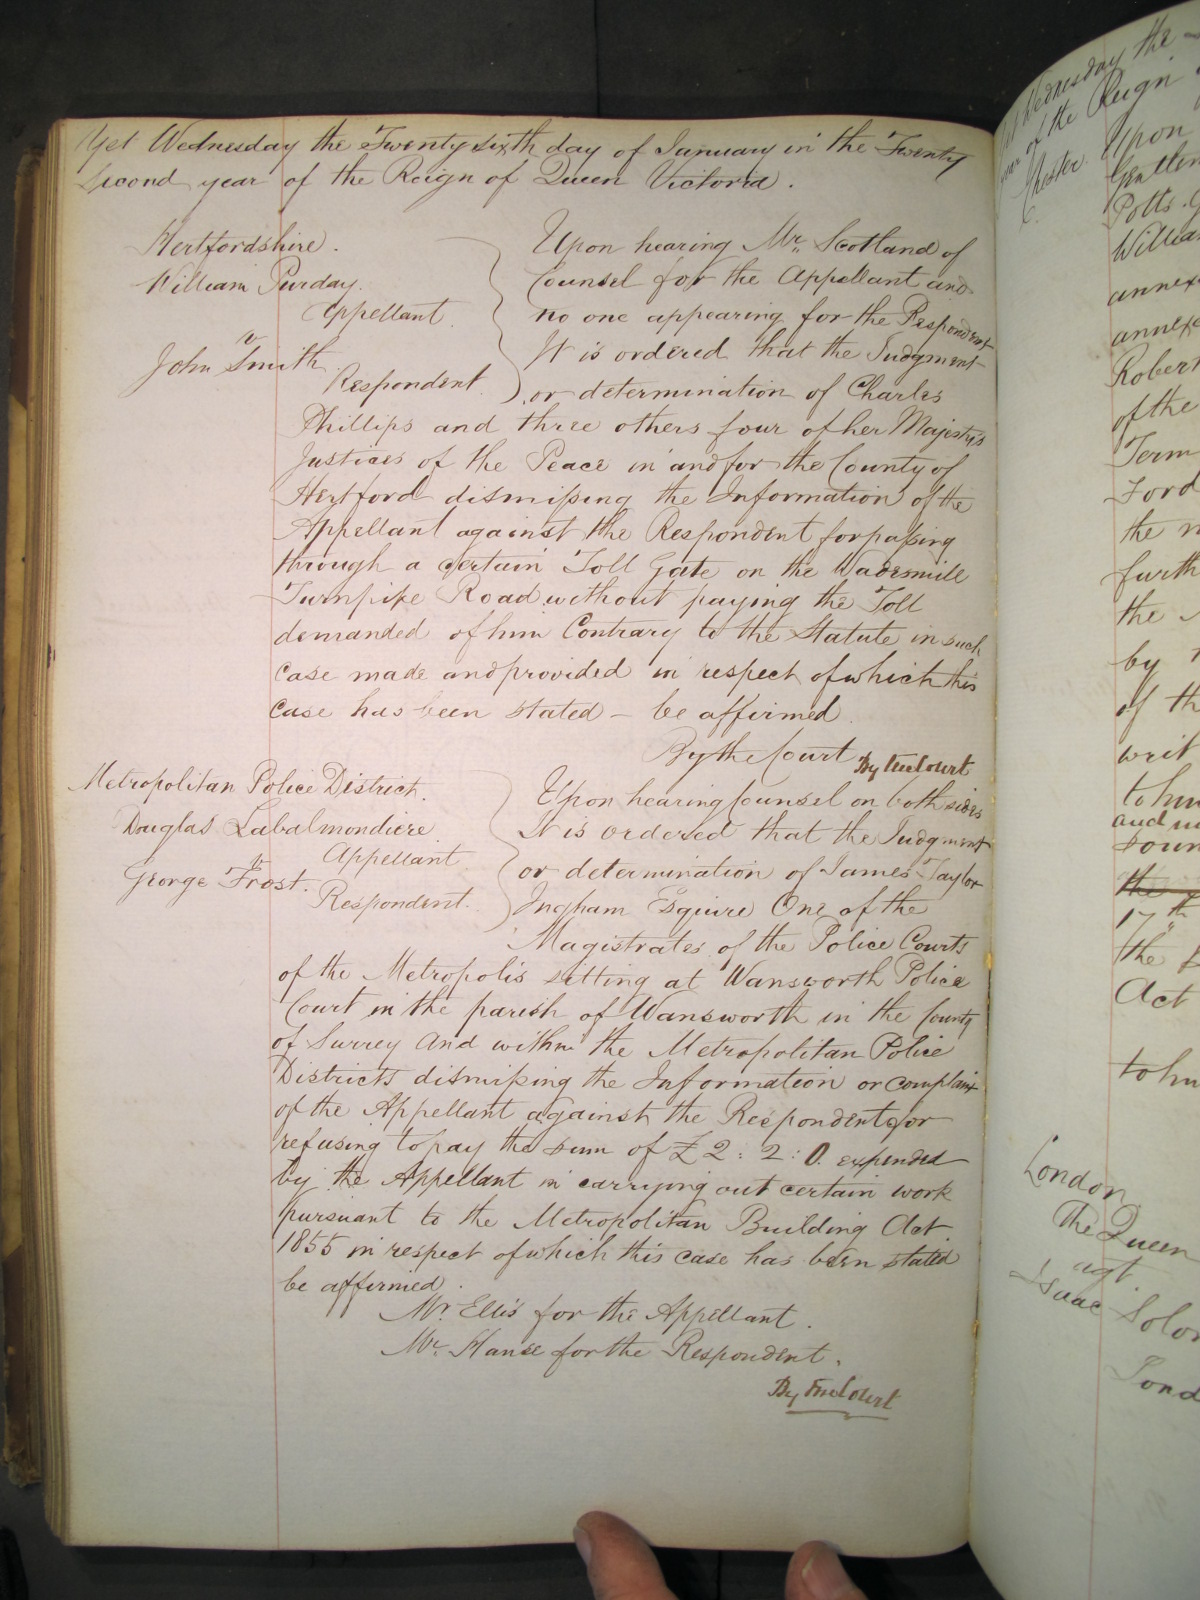 Yet Wednesday the Twenty sixth day of January in the Twenty
Second year of the Reign of Queen Victoria.
Hertfordshire.
William Purday.
Appellant
v
John Smith
Respondent
Upon hearing Mr. Scotland of
Counsel for the Appellant and
no one appearing for the Respondent
It is ordered that the Judgment
or determination of Charles
Phillips and three others four of her Majesty's
Justices of the Peace in and for the County of
Hertford dismissing the Information of the
Appellant against the Respondent for passing
through a certain Toll Gate on the Wadesmill
Turnpike Road without paying the Toll
demanded of him Contrary to the Statute in such
case made and provided in respect of which this
case has been stated – be affirmed
By the Court By the Court
Metropolitan Police District.
Douglas Labalmondiere
Appellant
v
George Frost.
Respondent.
Upon hearing Counsel on both sides
It is ordered that the Judgment
or determination of James Taylor
Ingham Esquire One of the
Magistrates of the Police Courts
of the Metropolis sitting at Wansworth Police
Court in the parish of Wansworth in the County
of Surrey and within the Metropolitan Police
Districts dismissing the Information or complaint
of the Appellant against the Respondent for
refusing to pay the sum of £2:2:0. expended
by the Appellant in carrying out certain work
pursuant to the Metropolitan Building Act
1855 in respect of which this case has been stated
be affirmed.
Mr. Ellis for the Appellant.
Mr. Hance for the Respondent.
By the Court
Wednesday the
of the Reign
Chester
Upon
Potts
annex
annexe
Robert
of the
Term
Ford
the
furth
the
by
of th
writ
to him
and
the
17th
the
Act
London
The Queen
agt.
Isaac Solo